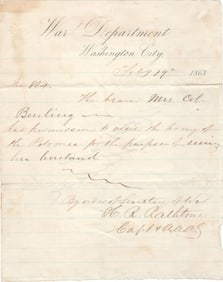 War Department
Washington City,
Feby 19th 1863
The bearer Mrs Col.
Burling
has permission to visit the Army of
the Potomac for the purpose of seeing
her husband
By order of Secretary of War
H. R. Rathbone
Capt & A.A.A.G.